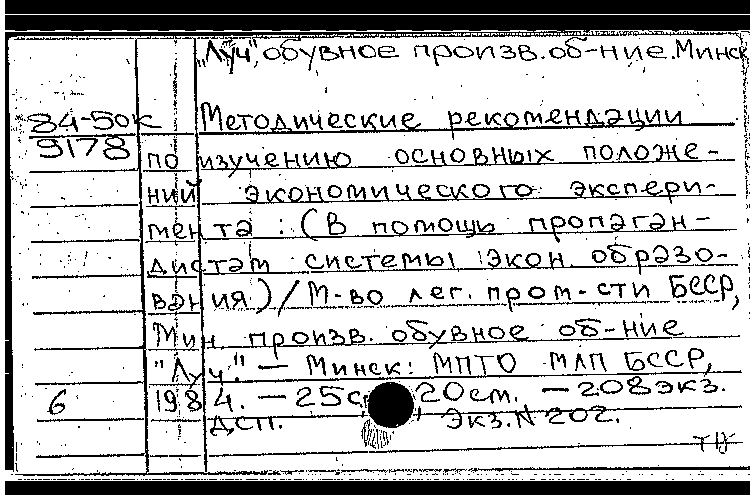 "Луч", обувное произв. об-ние. Минск
84-50к Методические рекомендации
9178 по изучению основных положе-
ний экономического экспери-
мента : (В помощь пропаган-
дистам системы экон. образо-
вания) / М-во лег. пром-сти БССР,
Мин. произв. обувное об-ние
"Луч". — Минск: МПТО МЛП БССР,
6 1984. — 25с. 20см. — 208экз.
ДСП. Экз. N 202.